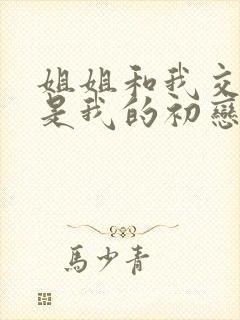 姐姐和我交
是我的初戀
馬少青